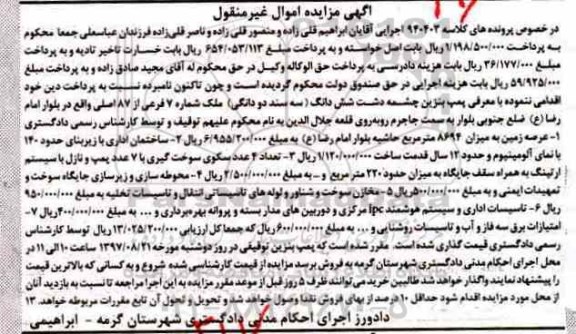 آگهی مزایده اموال غیرمنقول
در خصوص پرونده های کلاسه ۹۴۰۴۰۳ اجرایی آقایان ابراهیم قلی زاده و منصور قلی زاده و ناصر قلی زاده فرزندان عباسعلی جمعا محکوم
به پرداخت ۱/۱۹۸/۵۰۰/۰۰۰ ریال بابت اصل خواسته و به پرداخت مبلغ ۶۵۴/۰۵۳/۱۱۳ ریال بابت خسارت تاخیر تادیه و به پرداخت
مبلغ ۳۶/۱۷۷/۰۰۰ ریال بابت هزینه دادرسی به پرداخت حق الوکاله وکیل در حق محکوم له آقای مجید صادق زاده و به پرداخت مبلغ
۵۹/۹۲۵/۰۰۰ ریال بابت هزینه اجرایی در حق صندوق دولت محکوم گردیده است و چون تاکنون نامبرده نسبت به پرداخت دین خود
اقدامی ننموده با معرفی پمپ بنزین چشمه دشت شش دانگ ( سه سند دو دانگی) ملک شماره ۷ فرعی از ۸۷ اصلی واقع در بلوار امام
رضا (ع) ضلع جنوبی بلوار به سمت جاجرم روبه روی قلعه جلال الدین به نام محکوم علیهم توقیف و توسط کارشناس رسمی دادگستری
۱- عرصه زمین به میزان ۸۶۹۴ مترمربع حاشیه بلوار امام رضا (ع) به مبلغ ۶/۹۵۵/۲۰۰/۰۰۰ ریال ۲- ساختمان اداری با زیربنای حدود ۱۴۰
با نمای آلومینیوم و حدود ۱۲ سال قدمت ساخت ۱/۱۲۰/۰۰۰/۰۰۰ ریال ۳- تعداد ۴ عدد سکوی سوخت گیری با ۷ عدد پمپ و نازل با سیستم
ارتینگ به همراه سقف جایگاه به میزان حدود ۲۲۰ متر مربع و ... به مبلغ ۲/۵۰۰/۰۰۰/۰۰۰ ریال ۴- محوطه سازی و زیرسازی جایگاه سوخت و
تمهیدات ایمنی و به مبلغ ۵۰۰/۰۰۰/۰۰۰ ریال ۵- مخازن سوخت و شناور و لوله های تاسیساتی انتقال و تاسیسات تخلیه به مبلغ ۹۵۰/۰۰۰/۰۰۰
ریال ۶- تاسیسات اداری و سیستم هوشمند ipc مرکزی و دوربین های مدار بسته و پروانه بهره برداری و ... به مبلغ ۴۰۰/۰۰۰/۰۰۰ ریال ۷-
امتیازات برق سه فاز و آب و تاسیسات روشنایی و ... به مبلغ ۶۰۰/۰۰۰/۰۰۰ ریال که جمعا کل ارزیابی ۱۳/۰۲۵/۲۰۰/۰۰۰ ریال توسط کارشناس
رسمی دادگستری قیمت گذاری شده است. مقرر شده است که پمپ بنزین توقیفی در روز دوشنبه مورخه ۱۳۹۷/۰۸/۲۱ ساعت ۱۰ الی ۱۱ در
محل اجرای احکام مدنی دادگستری شهرستان گرمه به فروش برسد مزایده از قیمت کارشناسی شده شروع و به کسانی که بالاترین قیمت
را پیشنهاد نمایند واگذار خواهد شد طالبین خرید می توانند ظرف ۵ روز قبل از موعد مقرر مزایده به این اجرا مراجعه تا نسبت به بازدید آنان
از محل مورد مزایده اقدام شود حداقل ۱۰ درصد از بهای فروش نقدا وصول خواهد شد و تحویل و تحول آن تابع مقررات مربوطه خواهد. ۱۳
دادورز اجرای احکام مدنی دادگستری شهرستان گرمه - ابراهیمی